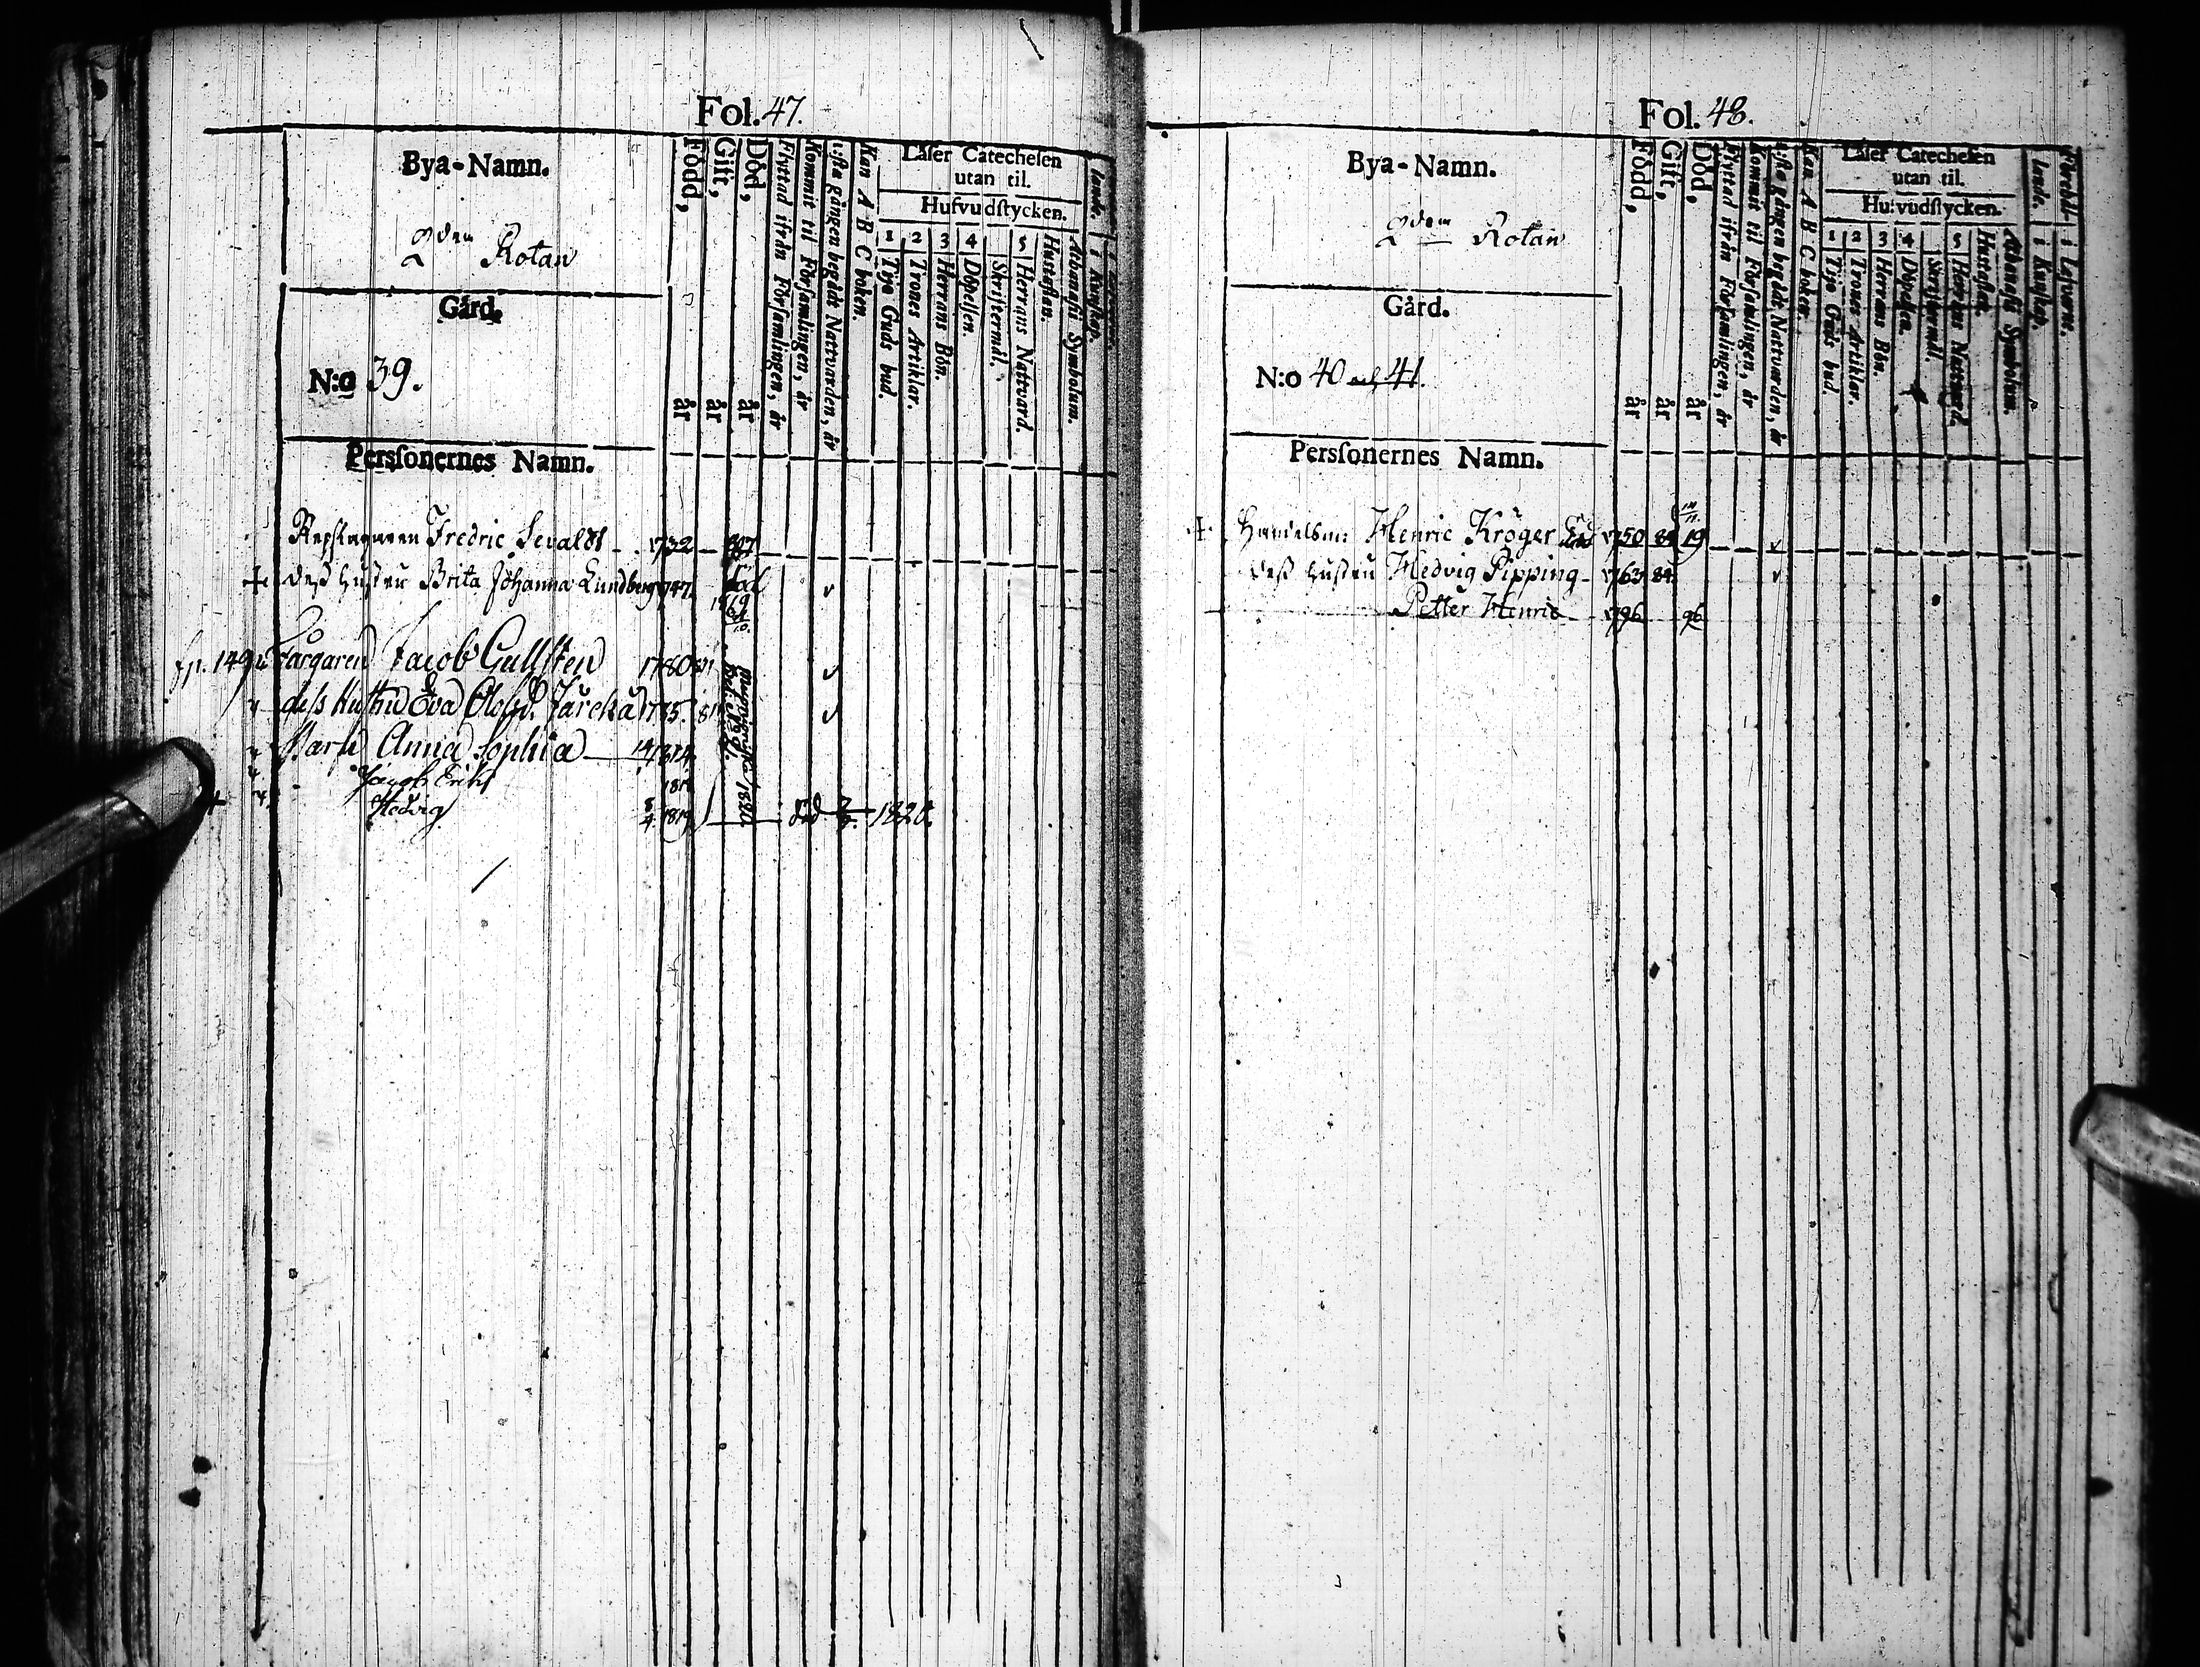 Fol. 47.
Bya-Namn.
2dra Rotan
Gård.
N:o 39.
Perſonernes Namn.
Född, år
Gift, år
Död, år
Flyttad ifrån Förſamlingen, år
Kommit til Förſamlingen, år
1:ſta gången begådt Nattvarden, år
Kan A B C boken.
Läſer Catecheſen
utan til.
Hufvudſtycken.
1 Tijo Guds bud.
2 Trones Artiklar.
3 Herrans Bön.
4 Döpelſen.
Skriftermål.
5 Herrans Nattvard.
Huſtaflan.
Athanaſii Symbolum.
Repslagaren Fredric Sevaldt 1732
+ deſs Huſtru Brita Johanna Lundberg 1747. död
1819
fp. 149 Färgaren Jacob Gullſten 1780
deſs Huſtru Eva 1785.
Barn Anna Sophia 1814
Jacob Erik
+ Hedvig 8/4 1819 död 1820.
Fol. 48.
Bya-Namn.
2dra Rotan
Gård.
N:o 40 och 41.
Perſonernes Namn.
Född, år
Gift, år
Död, år
Flyttad ifrån Förſamlingen, år
Kommit til Förſamlingen, år
1:ſta gången begådt Nattvarden, år
Kan A B C boken.
Läſer Catecheſen
utan til.
Hufvudſtycken.
1 Tijo Guds bud.
2 Trones Artiklar.
3 Herrans Bön.
4 Döpelſen.
Skriftermål.
5 Herrans Nattvard.
Huſtaflan.
Athanaſii Symbolum.
+ Handelsm: Henric Kröger 1750 84 19
deſs Huſtru Hedvig Pipping 1763 84
Petter Henric 1796 96